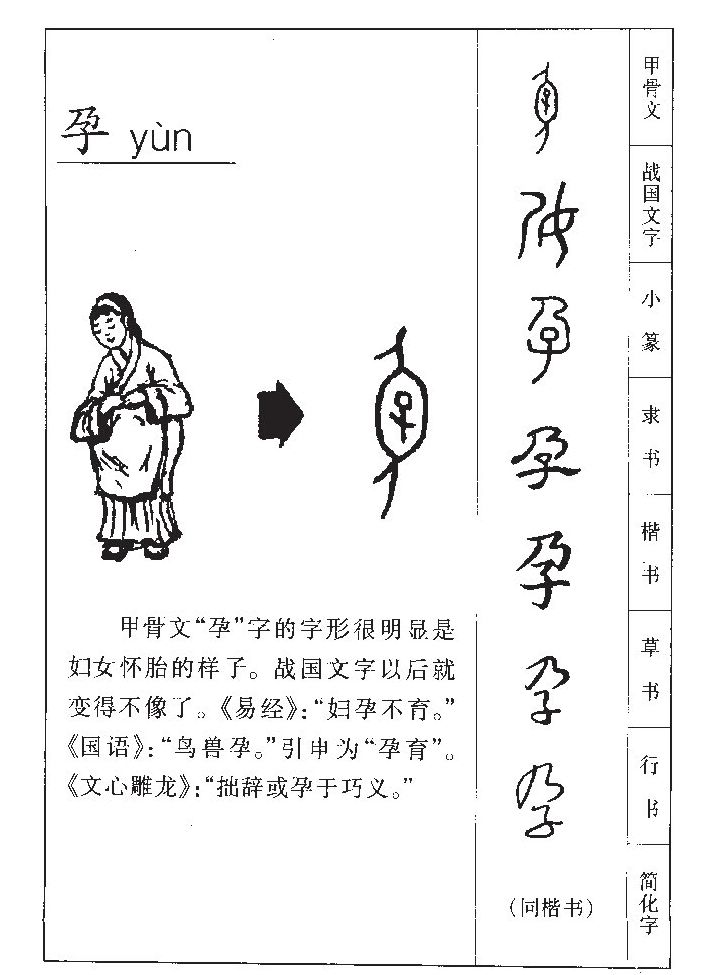 孕 yùn
甲骨文“孕”字的字形很明显是
妇女怀胎的样子。战国文字以后就
变得不像了。《易经》：“妇孕不育。”
《国语》：“鸟兽孕。”引申为“孕育”。
《文心雕龙》：“拙辞或孕于巧义。”
孕
孕
孕
孕
孕
（同楷书）
甲骨文
战国文字
小篆
隶书
楷书
草书
行书
简化字